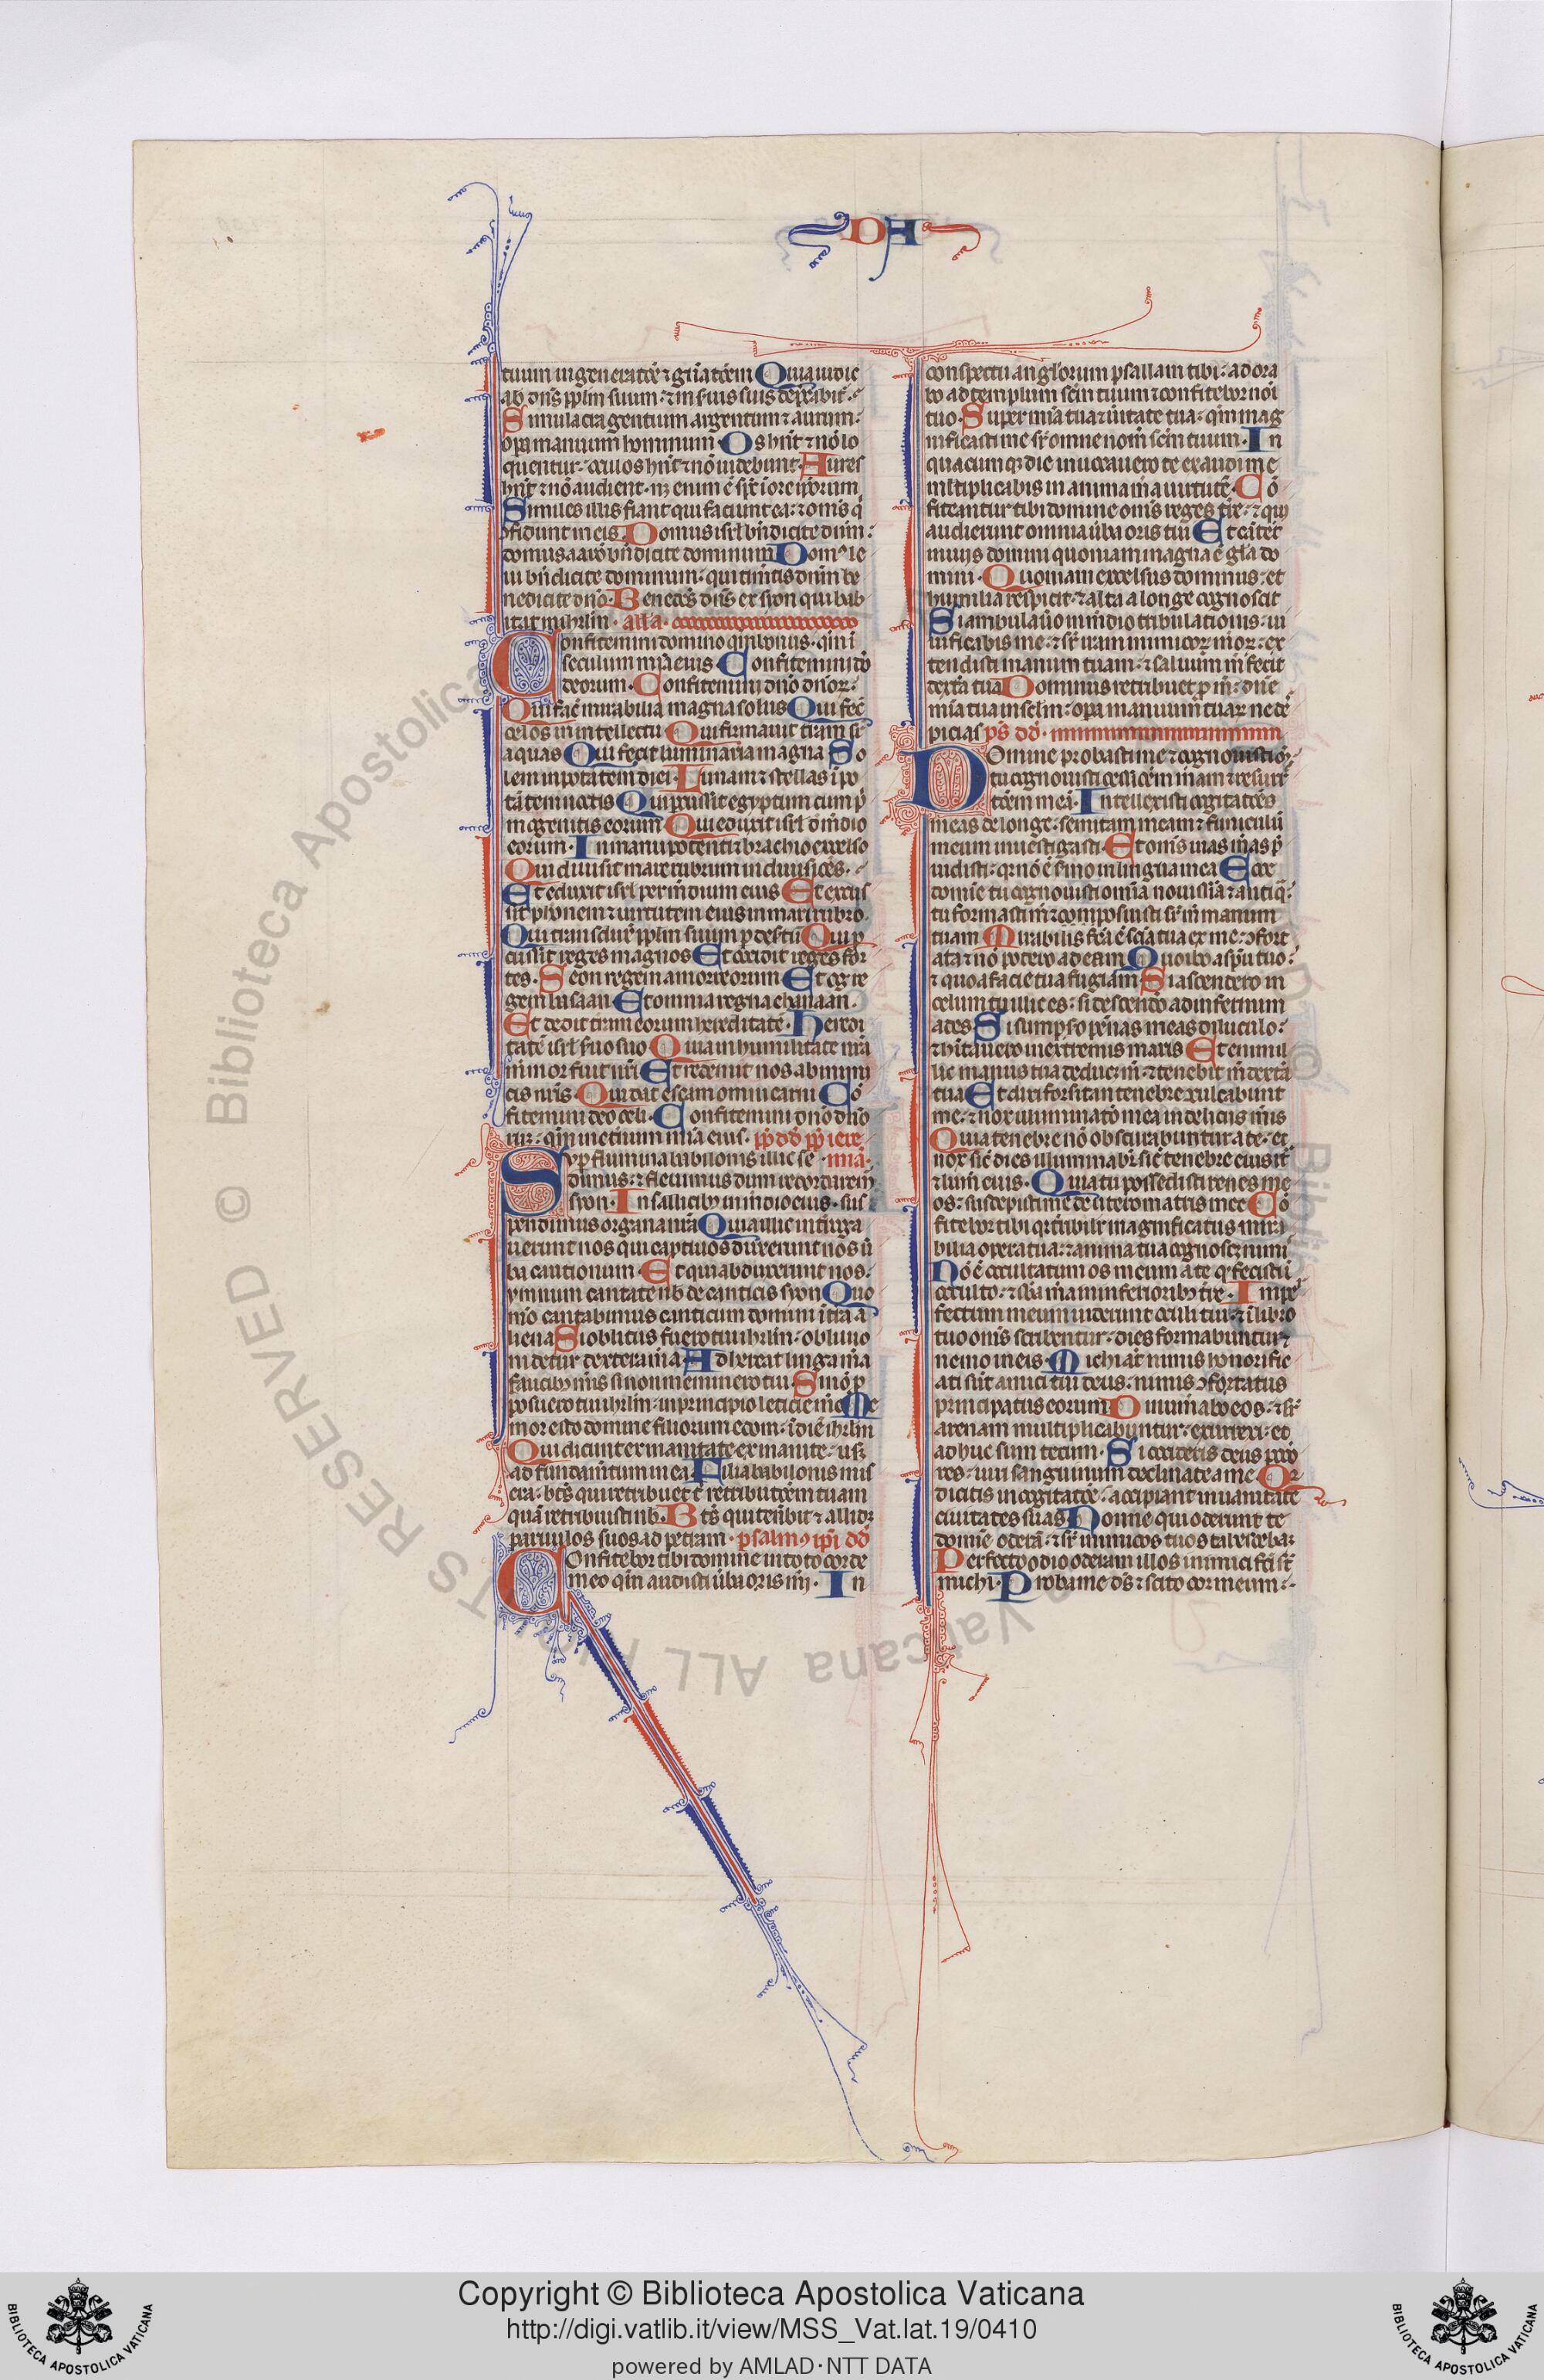 DA
tuum in generatōe ⁊ gn̄atōem Quia iudic
ab dn̄s pp̄lm suum: ⁊ in suis suis dep̄cabit̄.
Simulacra gentium argentum ⁊ aurum:
op̄a manuum hominum. Os hn̄t ⁊ nō lo
quentur: oculos hn̄t ⁊ nō uidebunt. Aures
hn̄t ⁊ nō audient. nꝫ enim ē sp̄c ī ore ip̄orum
Similes illis fiant qui faciunt ea: ⁊ om̄s q̇
ꝯfidunt in eis. Domus isrl bn̄dicite dn̄m:
domus aarō bn̄dicite dominum Domꝰ le
ui bn̄dicite dominum: qui timetis dn̄m be
nedicite dn̄o. Benedc̄s dn̄s ex syon qui hab
itat in ihrlm. alla.
Confitemini domino qm̄ bonus. qm̄ ī
seculum mīa eius Confitemini dō
deorum. Confitemini dn̄o dn̄oꝝ:
Qui fac̄ mirabilia magna solus Qui fec̄
celos in intellectu Qui firmauit t̄ram sr̄
aquas Qui fecit luminaria magna So
lem in potatem diei. Lunam ⁊ stellas ī po
tātem noctis Qui ꝑcussit egyptum cum p̄
mogenitis eorum Qui eduxit isrl d̄ medio
eorum. In manu potenti ⁊ brachio excelso
Qui diuisit mare rubrum in diuisiōes.
Et eduxit isrl per medium eius Et excus
sit pharaonem ⁊ uirtutem eius in mari rubro.
Qui transduxit pp̄lm suum ꝑ desertū Qui ꝑ
cussit reges magnos Et occidit reges for
tes. Seon regem amorreorum Et og re
gem basaan Et omnia regna chanaan.
Et dedit t̄ram eorum hereditatē. Heredi
tatē isrl s̄uo suo Quia in humilitate nr̄a
memor fuit nr̄i Et redemit nos ab inimi
cis nr̄is. Qui dat escam omni carni Cō
fitemini deo celi. Confitemini dn̄o dn̄o
rum: qm̄ in et̄num mīa eius. ps̄ dd̄ pp̄ iere
Sup̄ flumina babilonis illic se mia.
dimus: ⁊ fleuimus dum recordarem̄
syon. In salicibꝰ in medio eius. sus
pendimus organa nr̄a Quia illic int̄roga
uerunt nos qui captiuos duxerunt nos ū
ba cantionum Et qui abduxerunt nos:
ymnum cantate nob̄ de canticis syon Quo
mō cantabimus canticum domini ī t̄ra a
liena Si oblitus fuero tui ihrlm: obliuio
ni detur dextera mea Adhereat lingua mea
faucibꝰ meis si non meminero tui. Si nō p̄
posuero tui ihrlm: in principio leticie mee Me
mor esto domine filiorum edom: ī die ihrlm
Qui dicunt exinanite exinanite: usqꝫ
ad fundamentum in ea Filia babilonis mis
era: bt̄s qui retribuet t̄ retributōem tuam
quā retribuisti nob̄. Bt̄s qui tenebit ⁊ allidꝫ
paruulos suos ad petram. psalmꝰ ip̄i dd̄
Confitebor tibi domine in toto corde
meo qm̄ audisti ūba oris mei. In
conspectu angelorum psallam tibi: adora
bo ad templum scm̄ tuum ⁊ confitebor noī
tuo. Super mīa tua ⁊ ūitate tua: qm̄ mag
nificasti me sr̄ omne nom̄ scm̄ tuum. In
quacumqꝫ die inuocauero te exaudi me
multiplicabis in anima mea uirtutē. Cō
fiteantur tibi domine om̄s reges t̄re: ⁊ quia
audierunt omnia ūba oris tui Et cātet
in uiis domini quoniam magna ē gl̄a do
mini. Quoniam excelsus dominus: et
humilia respicit: ⁊ alta a longe cognoscit
Si ambulaūo in medio tribulationis: ui
uificabis me: ⁊ sr̄ iram inimicoꝝ meoꝝ: ex
tendisti manum tuam: ⁊ saluum me fecit
dextra tua Dominus retribuet ꝑ me: dn̄e
mīa tua in sc̄lm: op̄a manuum tuaꝝ ne de
picias ps̄ dd̄.
Domine probasti me ⁊ cognouisti me:
tu cognouisti cessiōem meam ⁊ resurr̄
tōem meā. Intellexisti cogitatōes
meas de longe: semitam meam ⁊ funiculū
meum inuestigasti. Et om̄s uias meas p̄
uidisti: qr nō ē sermo in lingua mea Ecce
domine tu cognouisti om̄ia nouissīa ⁊ antiq̄:
tu formasti me ⁊ composuisti sr̄ me manum
tuam Mirabilis fc̄a ē scīa tua ex me: ꝯfort
ata ⁊ nō potero ad eam. Quo ibo a sp̄u tuo:
⁊ quo a facie tua fugiam Si ascendero in
celum tu illic es: si descendo ad infernum
ades Si sumpsero pennas meas diluculo:
⁊ hitauero in extremis maris Et enim il
luc manus tua deducet me: ⁊ tenebit me dextra
tua Et dixi forsitan tenebre ꝯculcabunt
me: ⁊ nox illuminatō mea in deliciis meis
Quia tenebre nō obscurabuntur a te. et
nox sic̄ dies illuminabit̄ sic̄ tenebre eius it̄
⁊ lum̄ eius. Quia tu possedisti renes me
os: suscepisti me de utero matris mee Cō
fitebor tibi qr t̄ribilit̄ magnificatus es: mira
bilia opera tua: ⁊ anima tua cognoscꝫ nimis
Nō ē occultatum os meum a te qꝫ fecisti ī
occulto: ⁊ sb̄a mea in inferioribꝰ t̄re. Impꝑ
fectum meum uiderunt oculi tui: ⁊ ī libro
tuo om̄s scribentur: dies formabuntur ⁊
nemo in eis. Michi aūt nimis honorific
ati sūt amici tui deus: nimis ꝯfortatus
principatus eorum Dinumerabo eos: ⁊ sr̄
arenam multiplicabuntur: exurrexi: et
adhuc sum tecum. Si occideris deus pecca
res: uiri sanguinum declinate a me. Qr
dicitis in cogitatōe: accipiant in uanitate
ciuitates suas Nonne qui oderunt te
domine oderā: ⁊ sr̄ inimicos tuos tabescebaꝫ
Perfecto odio oderam illos inimici fc̄i st̄
michi. Proba me ds̄ ⁊ scito cor meum:
© Biblioteca Apostolica Vaticana ALL RIGHTS RESERVED
Copyright © Biblioteca Apostolica Vaticana
http://digi.vatlib.it/view/MSS_Vat.lat.19/0410
powered by AMLAD·NTT DATA
BIBLIOTECA APOSTOLICA VATICANA
BIBLIOTECA APOSTOLICA VATICANA